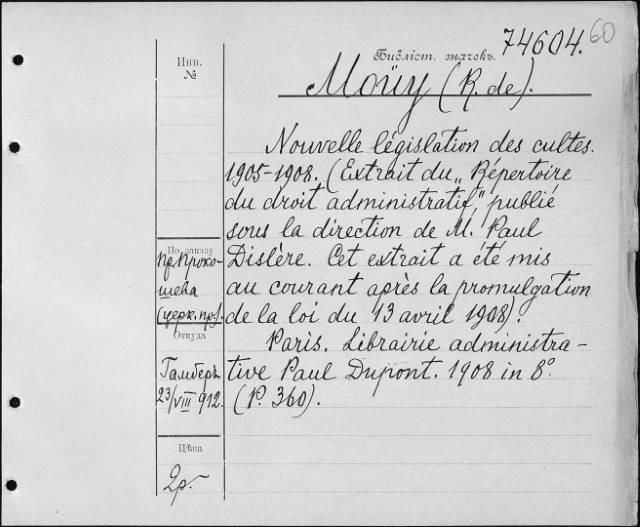 74604. 60
Инв.
№
Библіот. значекъ.
Moüy (R. de).
Nouvelle législation des cultes.
1905-1908. (Extrait du „Répertoire
du droit administratif," publié
sous la direction de M. Paul
Dislère. Cet extrait a été mis
au courant après la promulgation
de la loi du 13 avril 1908)
Paris. Librairie administra-
tive Paul Dupont. 1908 in 8°.
(P. 360).
По заказу
пр. Проко-
шева
(церк. пр.).
Откуда
Гамберъ
23/VIII 912.
Цѣна
2р.-